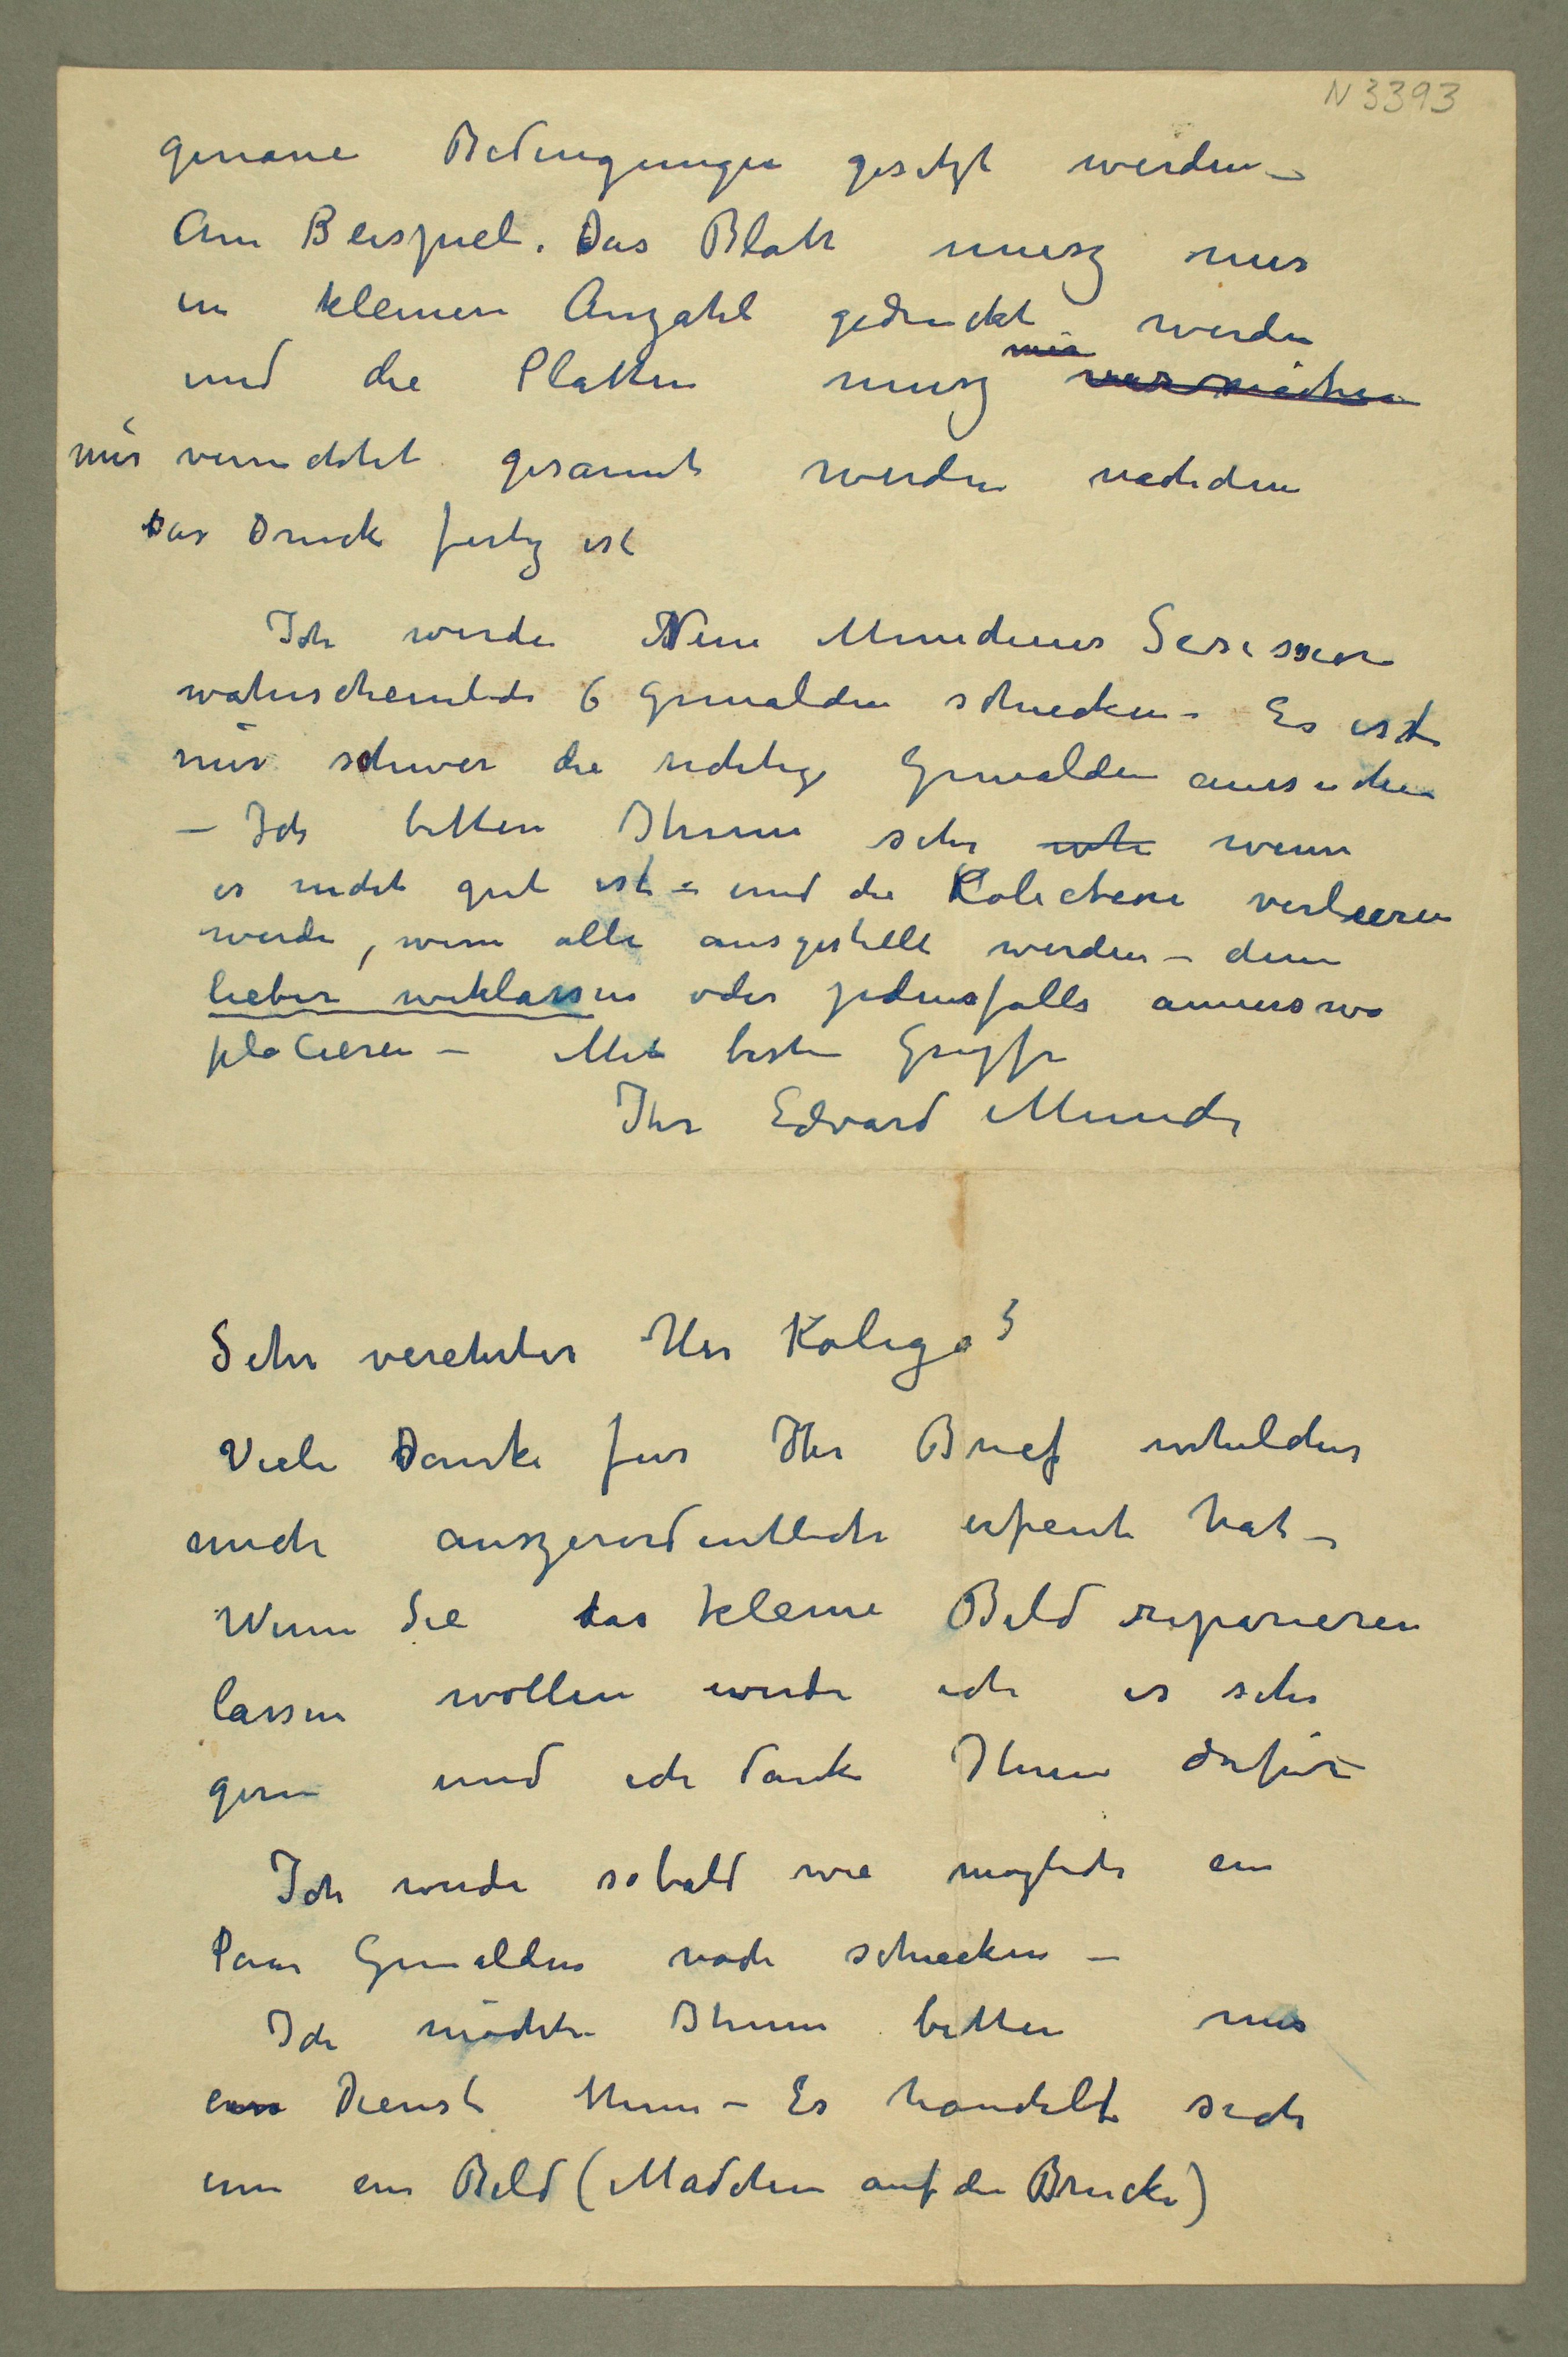 N 3393
genaue Bedingungen gesetzt werden –
Am Beispiel. Das Blatt musz nur
in kleinen Anzahl gedruckt werden
und die Platten musz
mir vernichtet gesannt werden nachdem
das Druck fertig ist
Ich werde Neue Munchener Sesession
wahrscheinlich 6 Gemälden schicken – Es ist
mir schwer die richtige Gemälden aussuchen
– Ich bitten Ihnen sehr wenn
es nicht gut ist – und die Kolection verlieren
werde, wenn alle ausgestellt werden – denn
lieber weklassen oder jedensfalls annerswo
placieren – Mit besten Gruße
Ihr Edvard Munch
Sehr verehrter Her Kolega!
Viele Danke fur Ihr Brief welcher
mich auszerordentlich erfeut hat –
Wenn Sie das kleine Bild reparieren
lassen wollen werde ich es sehr
gern und ich danke Ihnen dafür
Ich werde sobald wie moglich ein
Paar Gemälden nach schicken –
Ich möchte Ihnen bitten mir
ein Dienst thun – Es handelt sich
um ein Bild (Mädchen auf der Brucke)